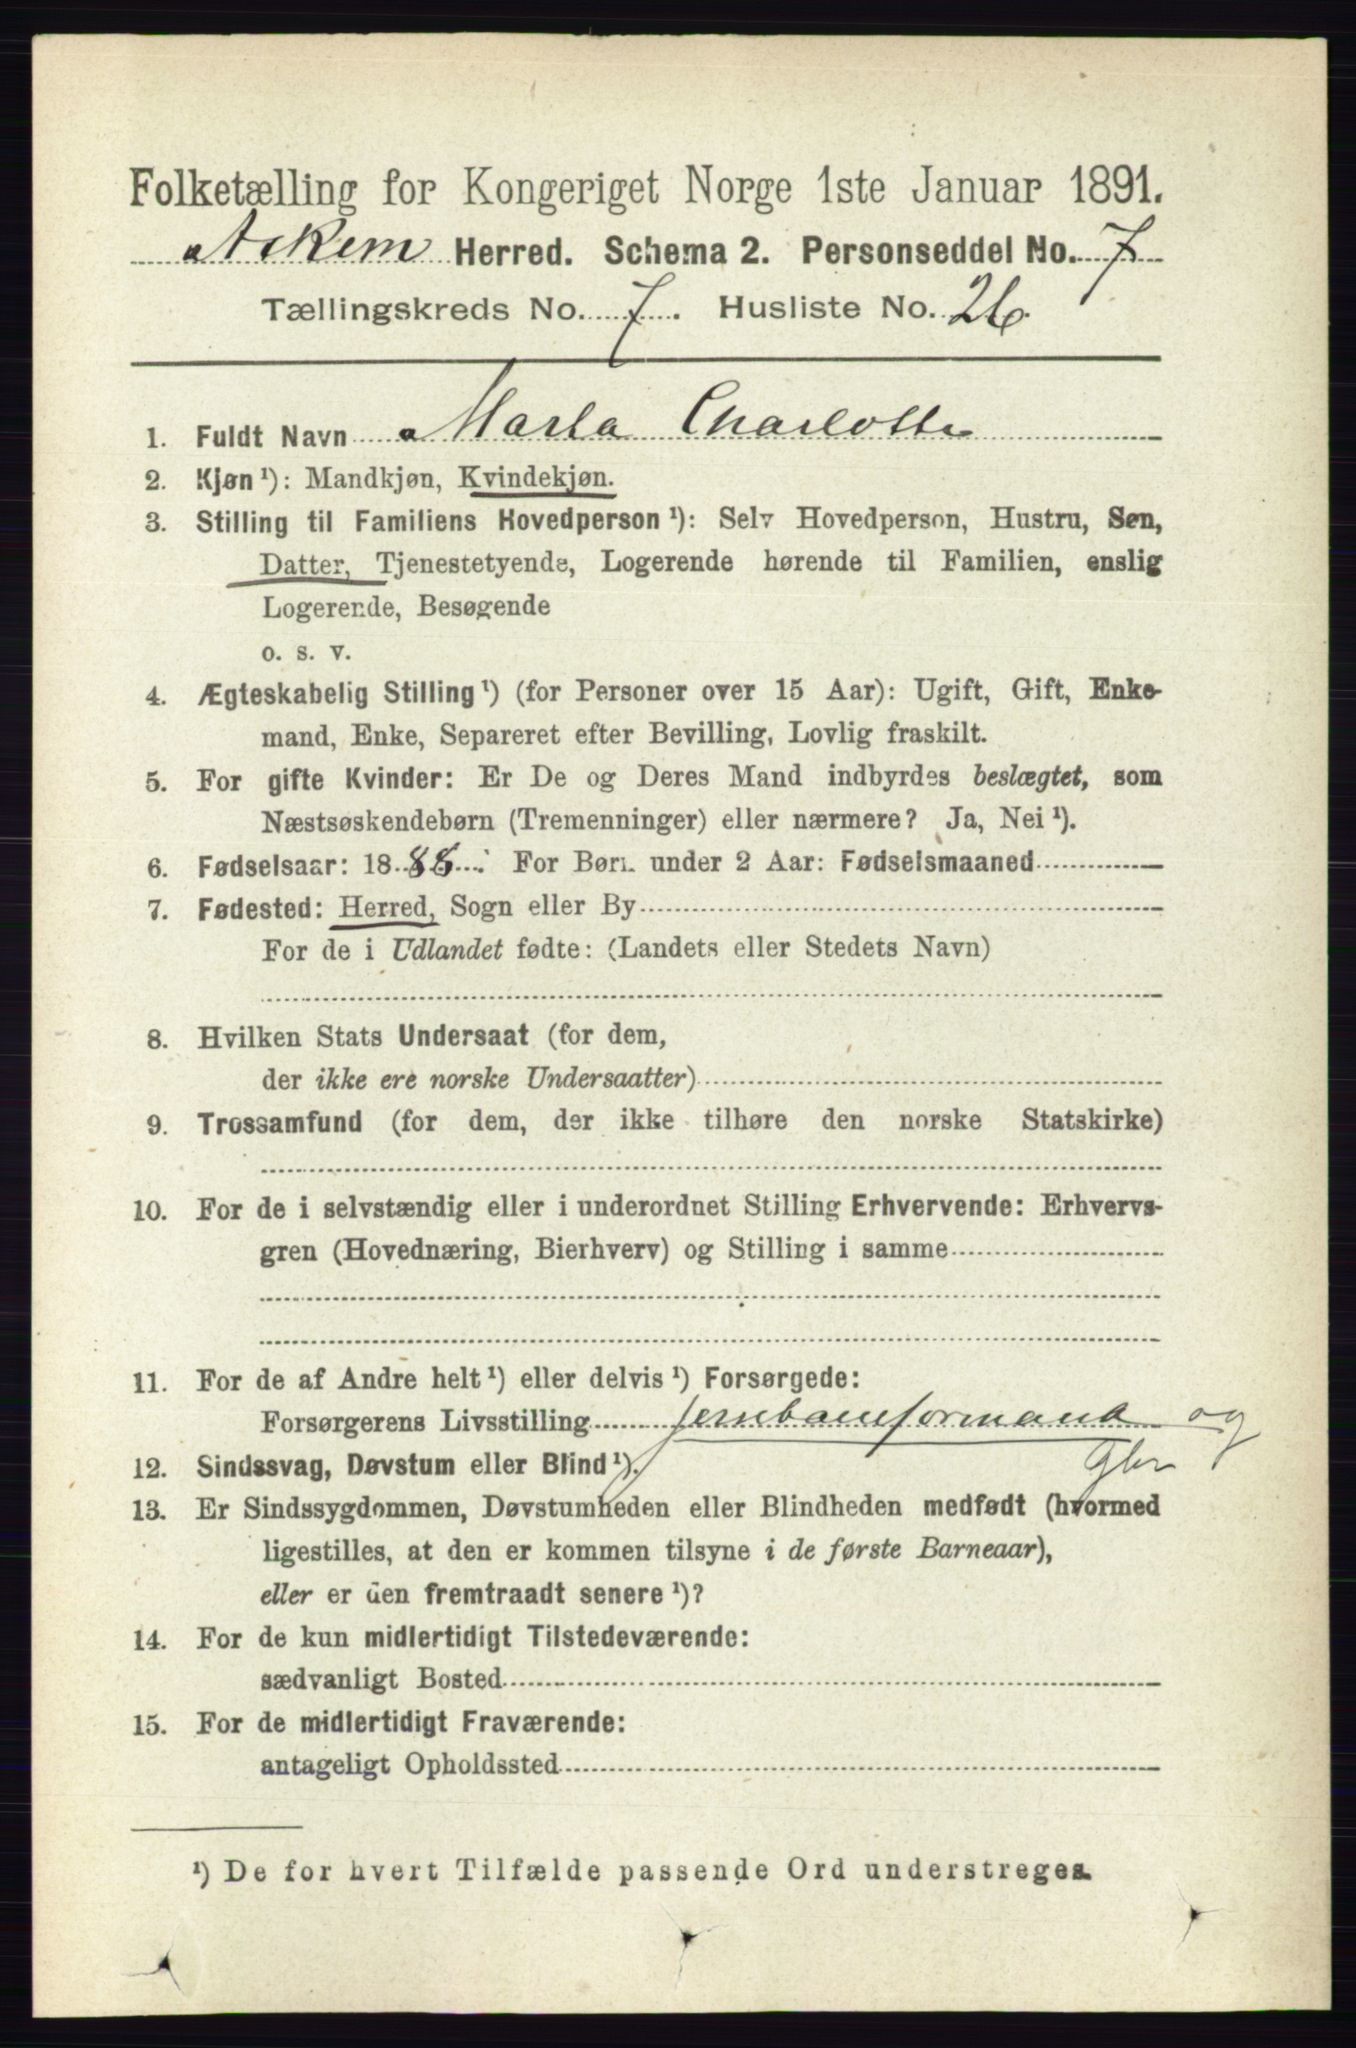 Folketælling for Kongeriget Norge 1ste Januar 1891.
Askem Herred. Schema 2. Personseddel No. 7
Tællingskreds No. 7. Husliste No. 26.
1. Fuldt Navn Marta Charlotte
2. Kjøn ¹): Mandkjøn, Kvindekjøn.
3. Stilling til Familiens Hovedperson ¹): Selv Hovedperson, Hustru, Søn,
Datter, Tjenestetyende, Logerende hørende til Familien, enslig
Logerende, Besøgende
o. s. v.
4. Ægteskabelig Stilling ¹) (for Personer over 15 Aar): Ugift, Gift, Enke-
mand, Enke, Separeret efter Bevilling, Lovlig fraskilt.
5. For gifte Kvinder: Er De og Deres Mand indbyrdes beslægtet, som
Næstsøskendebørn (Tremenninger) eller nærmere? Ja, Nei ¹).
6. Fødselsaar: 1888. For Børn under 2 Aar: Fødselsmaaned
7. Fødested: Herred, Sogn eller By
For de i Udlandet fødte: (Landets eller Stedets Navn)
8. Hvilken Stats Undersaat (for dem,
der ikke ere norske Undersaatter)
9. Trossamfund (for dem, der ikke tilhøre den norske Statskirke)
10. For de i selvstændig eller i underordnet Stilling Erhvervende: Erhvervs-
gren (Hovednæring, Bierhverv) og Stilling i samme
11. For de af Andre helt ¹) eller delvis ¹) Forsørgede:
Forsørgerens Livsstilling Jernbaneformand og
12. Sindssvag, Døvstum eller Blind ¹). Gbr
13. Er Sindssygdommen, Døvstumheden eller Blindheden medfødt (hvormed
ligestilles, at den er kommen tilsyne i de første Barneaar),
eller er den fremtraadt senere ¹)?
14. For de kun midlertidigt Tilstedeværende:
sædvanligt Bosted
15. For de midlertidigt Fraværende:
antageligt Opholdssted
¹) De for hvert Tilfælde passende Ord understreges.